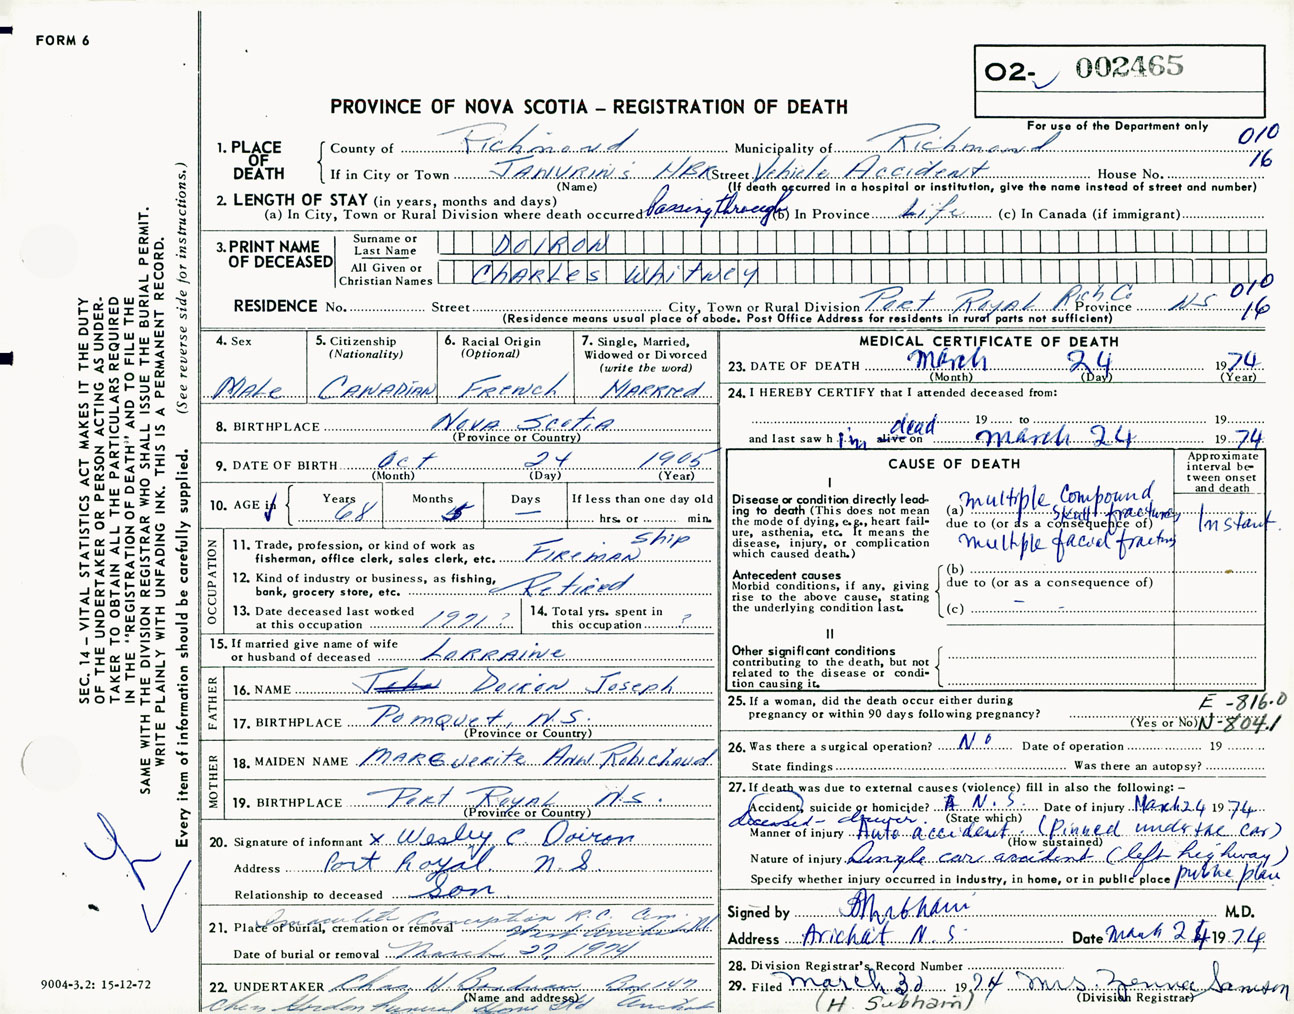 FORM 6
O2- 002465
For use of the Department only
PROVINCE OF NOVA SCOTIA – REGISTRATION OF DEATH
010
16
1. PLACE OF DEATH
County of Richmond Municipality of Richmond
If in City or Town Street Vehicle Accident House No.
(Name) (If death occurred in a hospital or institution, give the name instead of street and number)
2. LENGTH OF STAY (in years, months and days)
(a) In City, Town or Rural Division where death occurred passing through (b) In Province Life (c) In Canada (if immigrant)
3. PRINT NAME OF DECEASED
Surname or Last Name DOIRON
All Given or Christian Names CHARLES WHITNEY
010
16
RESIDENCE No. Street City, Town or Rural Division Port Royal Rich Co Province NS
(Residence means usual place of abode. Post Office Address for residents in rural parts not sufficient)
4. Sex MALE
5. Citizenship (Nationality) CANADIAN
6. Racial Origin (Optional) FRENCH
7. Single, Married, Widowed or Divorced (write the word) MARRIED
8. BIRTHPLACE NOVA SCOTIA
(Province or Country)
9. DATE OF BIRTH Oct 24 1905
(Month) (Day) (Year)
10. AGE if Years 68 Months 5 Days — If less than one day old hrs. or min.
OCCUPATION
11. Trade, profession, or kind of work as fisherman, office clerk, sales clerk, etc. FIREMAN Ship
12. Kind of industry or business, as fishing, bank, grocery store, etc. Retired
13. Date deceased last worked at this occupation 1971 ?
14. Total yrs. spent in this occupation ?
15. If married give name of wife or husband of deceased LORRAINE
FATHER
16. NAME John DOIRON Joseph
17. BIRTHPLACE Pomquet, N.S.
(Province or Country)
MOTHER
18. MAIDEN NAME MARGUERITE ANN Robichaud
19. BIRTHPLACE Port Royal N.S.
(Province or Country)
20. Signature of informant x Wesley C. Doiron
Address Port Royal N S
Relationship to deceased Son
21. Place of burial, cremation or removal Immaculate Conception R.C. Cem.
Date of burial or removal March 27, 1974
22. UNDERTAKER Chas. H. Boudreau Box 147
(Name and address)
MEDICAL CERTIFICATE OF DEATH
23. DATE OF DEATH March 24 1974
(Month) (Day) (Year)
24. I HEREBY CERTIFY that I attended deceased from:
19 to 19
and last saw him alive on dead March 24 1974
CAUSE OF DEATH
Approximate interval between onset and death
I
Disease or condition directly leading to death (This does not mean the mode of dying, e.g., heart failure, asthenia, etc. It means the disease, injury, or complication which caused death.)
(a) multiple compound skull fractures
due to (or as a consequence of)
multiple facial fractures
Instant
Antecedent causes
Morbid conditions, if any, giving rise to the above cause, stating the underlying condition last.
(b)
due to (or as a consequence of)
(c)
II
Other significant conditions contributing to the death, but not related to the disease or condition causing it.
25. If a woman, did the death occur either during pregnancy or within 90 days following pregnancy?
(Yes or No)
E-816.0
N-804.1
26. Was there a surgical operation? No Date of operation 19
State findings Was there an autopsy?
27. If death was due to external causes (violence) fill in also the following: –
Accident, suicide or homicide? A N.S. Date of injury March 24 1974
(State which)
deceased - driver.
Manner of injury Auto accident. (Pinned under the car)
(How sustained)
Nature of injury Single car accident (left highway)
Specify whether injury occurred in industry, in home, or in public place public place
Signed by M.D.
Address Arichat N.S Date March 24 1974
28. Division Registrar's Record Number
29. Filed March 1974 Mrs. Samson
(Division Registrar)
(H. Subham)
SEC. 14 – VITAL STATISTICS ACT MAKES IT THE DUTY
OF THE UNDERTAKER OR PERSON ACTING AS UNDER-
TAKER TO OBTAIN ALL THE PARTICULARS REQUIRED
IN THE "REGISTRATION OF DEATH" AND TO FILE THE
SAME WITH THE DIVISION REGISTRAR WHO SHALL ISSUE THE BURIAL PERMIT.
WRITE PLAINLY WITH UNFADING INK. THIS IS A PERMANENT RECORD.
Every item of information should be carefully supplied. (See reverse side for instructions.)
9004-3.2: 15-12-72